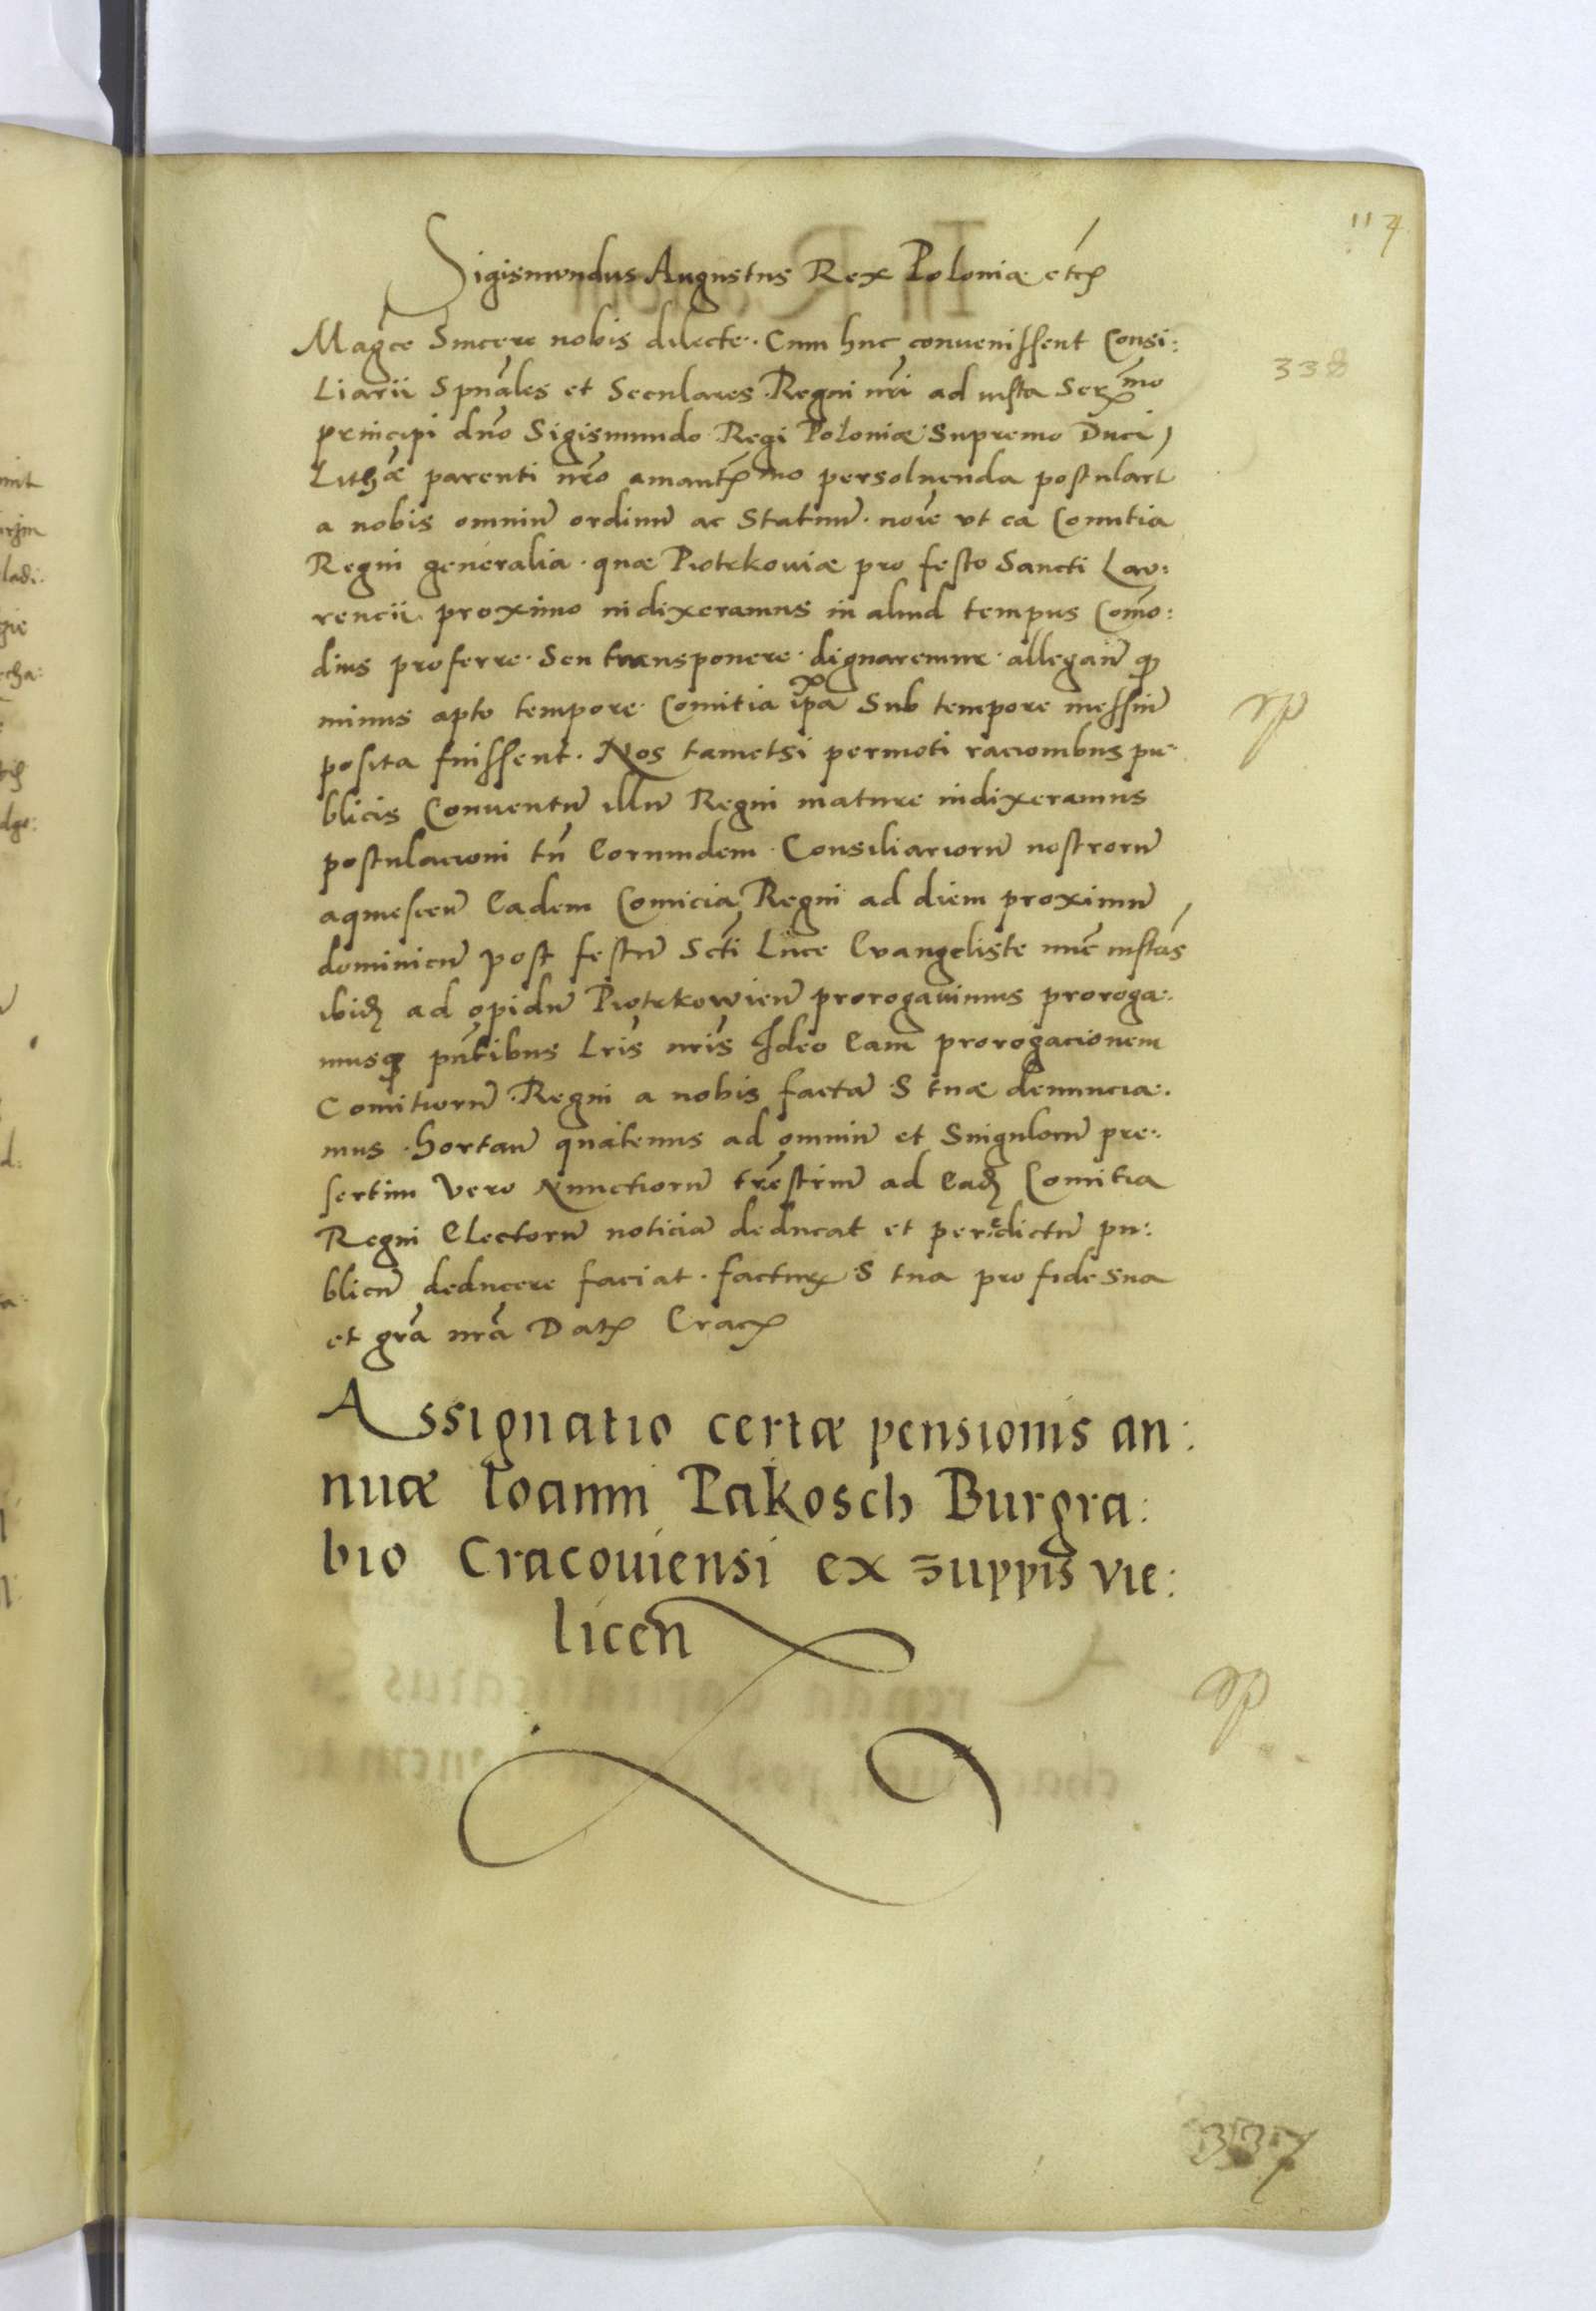 117
Sigismundus Augustus Rex Poloniæ etc
338
Magce Sincere nobis dilecte. Cum huc convenissent Consi:
liarii Spuales et Seculares Regni nri ad iusta Sermo
principi dno Sigismundo Regi Poloniæ Supremo Duci
Lithæ parenti nro amantmo persoluenda postulart
a nobis omniu ordinu ac Statuu. noie ut ea Comitia
Regni generalia. quæ Piotrkoviæ pro festo Sancti Lau:
rencii proximo indixeramus in aliud tempus Como:
dius proferre. Seu transponere. dignaremur. allegan q
minus apto tempore Comitia ipa Sub tempore messiu
posita fuissent. Nos tametsi permoti racionibus pu:
blicis Conventu illu Regni mature indixeramus
postulacioni tn Eorumdem. Consiliarioru nostroru
aquiescen Eadem Comicia Regni ad diem proximu
dominicu post festu Scti Luce Evangeliste nuc instas
ibid ad opidu Piotrkowien prorogavimus proroga:
musq pntibus Lris nris Ideo Eam prorogacionem
Comitioru Regni a nobis facta S tuæ denuncia:
mus. Hortan quatenus ad omniu et Singuloru pre:
sertim vero Nunctioru trestriu ad Ead Comitia
Regni Electoru noticia deducat et per edictu pu:
blicu deducere faciat. factur S tua pro fide sua
et gra nra Dat Crac
Assignatio certæ pensionis an:
nuæ Ioanni Pakosch Burgra:
bio Cracoviensi ex zuppis vie:
licen
337